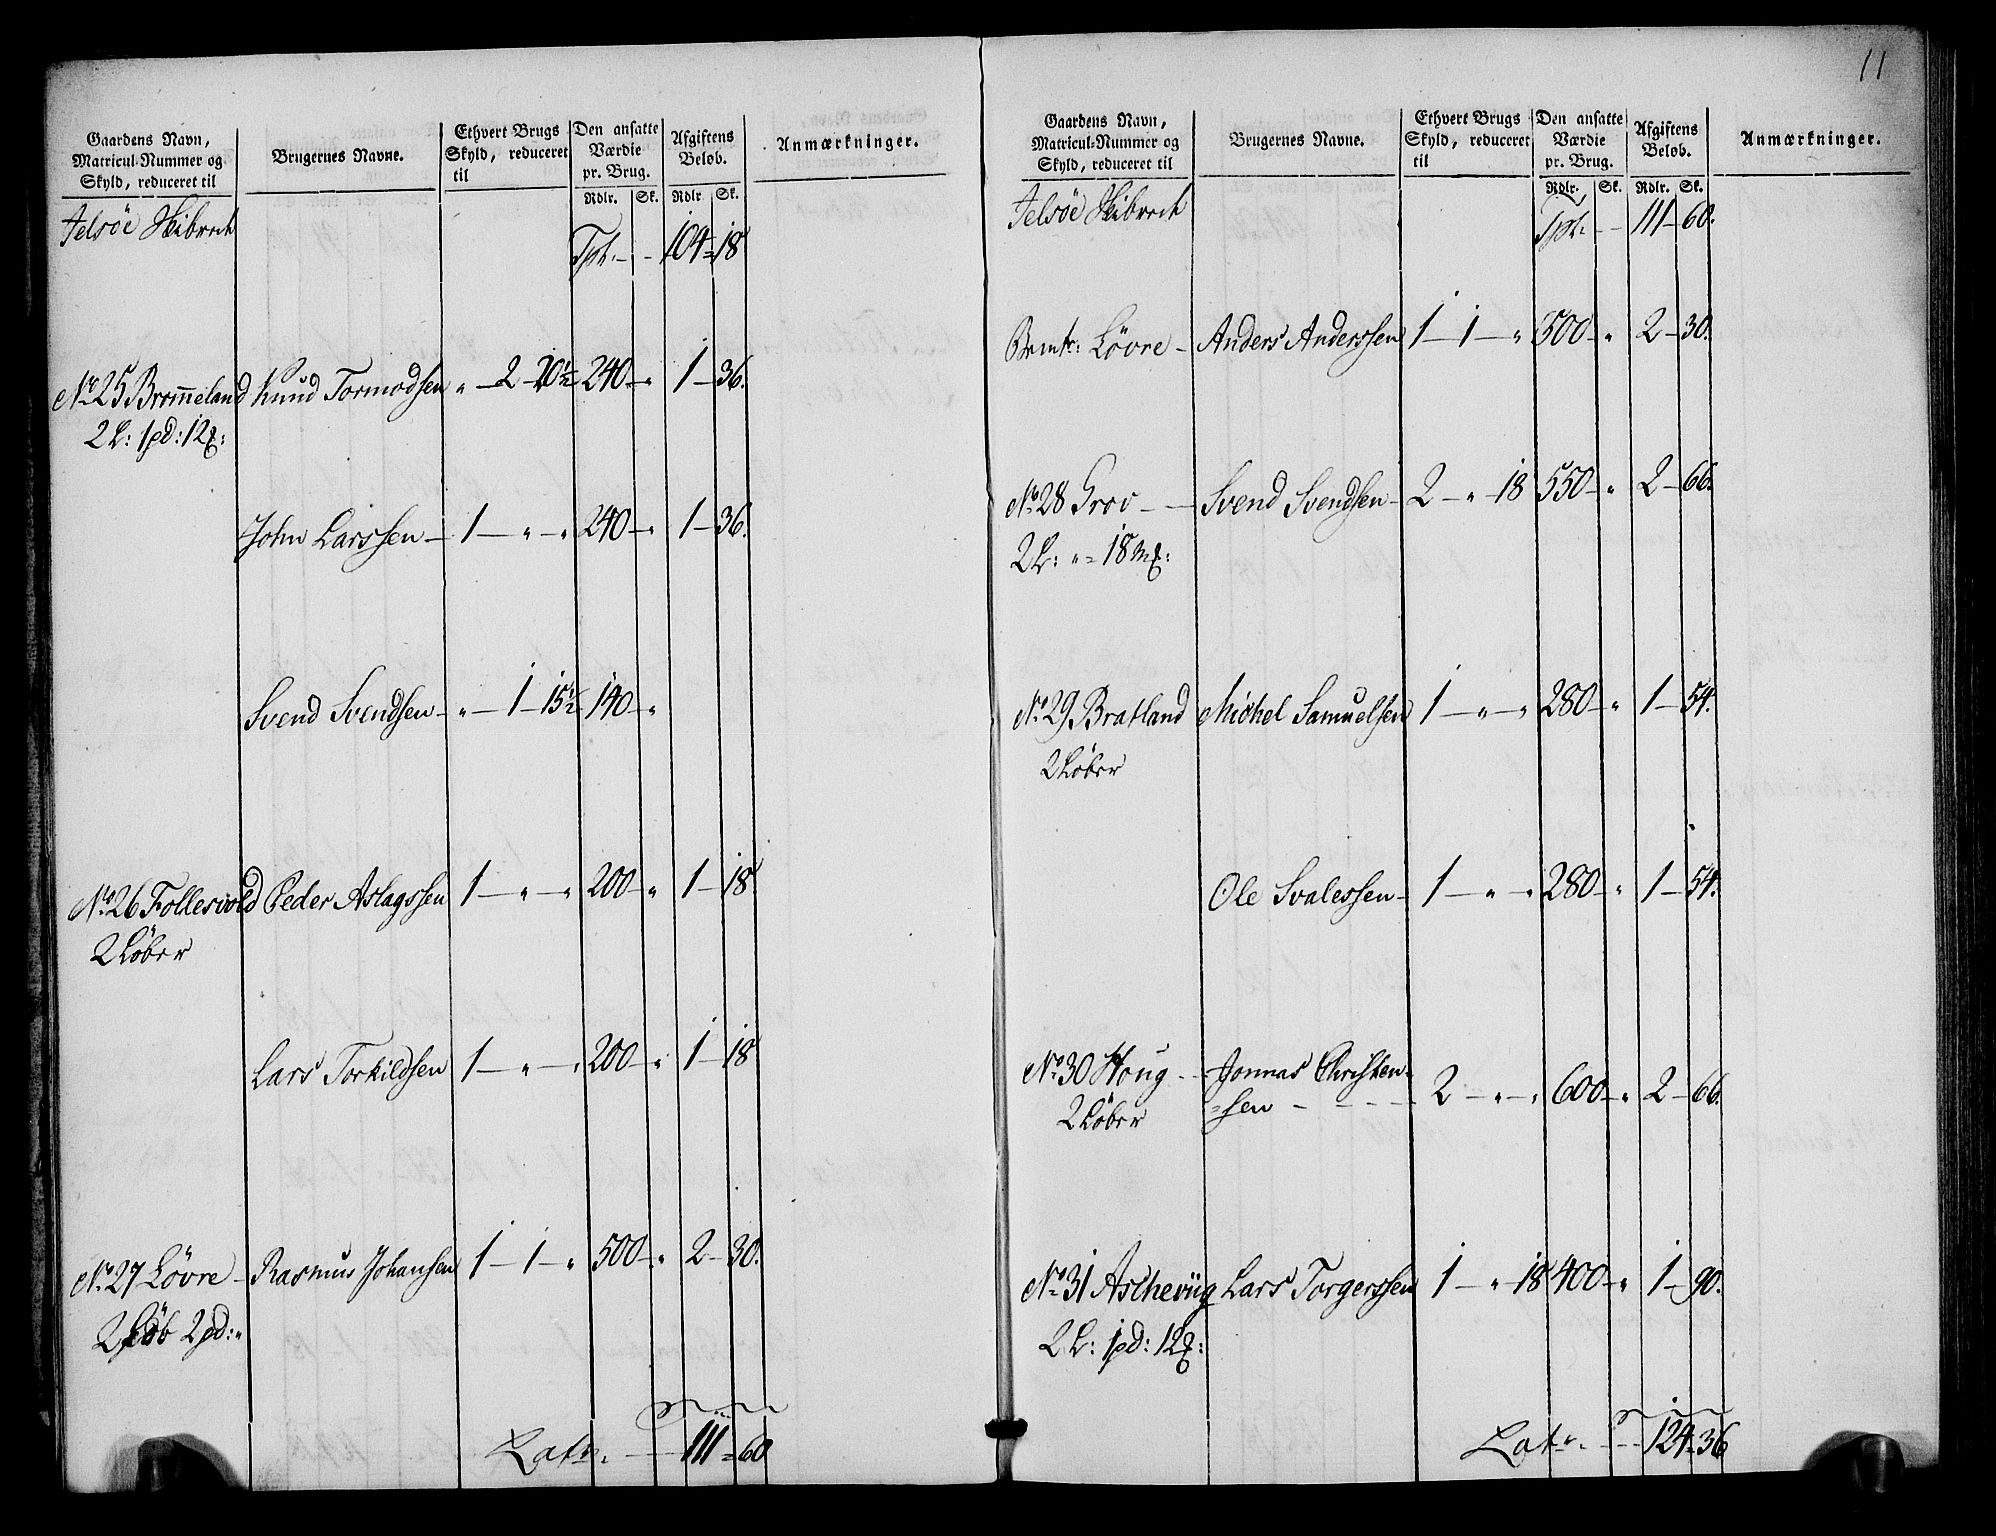 Gaardens Navn,
Matricul-Nummer og
Skyld, reduceret til
Brugernes Navne.
Ethvert Brugs
Skyld, reduceret
til
Den ansatte
Værdie
pr. Brug.
Afgiftens
Beløb.
Anmærkninger.
Rdlr. Sk. Rdlr Sk.
Jelsöe Skibrede
Tpt. - - 104 = 18
No 25 Brommeland Knud Tormodsen „ — 2 - 20½ 240 — „ 1 — 36.
2 L: 1 pd: 12 :
John Larssen — 1 — „ — „ 240 — „ 1 — 36.
Svend Svendsen — „ — 1 — 15½ 140 — „
No 26 Follesvold Peder Aslagssen 1 — „ — „ 200 — „ 1 — 18
2 Löber
Lars Torkildsen 1 — „ — „ 200 — „ 1 — 18
No 27 Lövre — Rasmus Johansen 1 — 1 — „ 500 — „ 2 — 30.
2 Löb 2 pd: „
Latr. — 111 = 60
11
Gaardens Navn,
Matricul-Nummer og
Skyld, reduceret til
Brugernes Navne.
Ethvert Brugs
Skyld, reduceret
til
Den ansatte
Værdie
pr. Brug.
Afgiftens
Beløb.
Anmærkninger.
Rdlr. Sk. Rdlr. Sk.
Jelsöe Skibrede
Tpt. - - 111 — 60.
Lövre — Anders Anderssen 1 — 1 — „ 500 — „ 2 — 30.
No 28 Grov — Svend Svendsen — 2 — „ — 18 550 — „ 2 — 66.
2 L: „ = 18 :
No 29 Bratland Michel Samuelsen 1 — „ — „ 280 — „ 1 — 54.
2 Löber
Ole Svalessen — 1 — „ — „ 280 — „ 1 — 54.
No 30 Houg - - Jonnas Christen-
2 Löber =sen - - - - 2 — „ — „ 600 — „ 2 — 66.
No 31 Aschevüg Lars Torgerssen 1 — „ 18 400 — „ 1 — 90.
2 L: 1 pd: 12 :
Latr. - - - 124 = 36